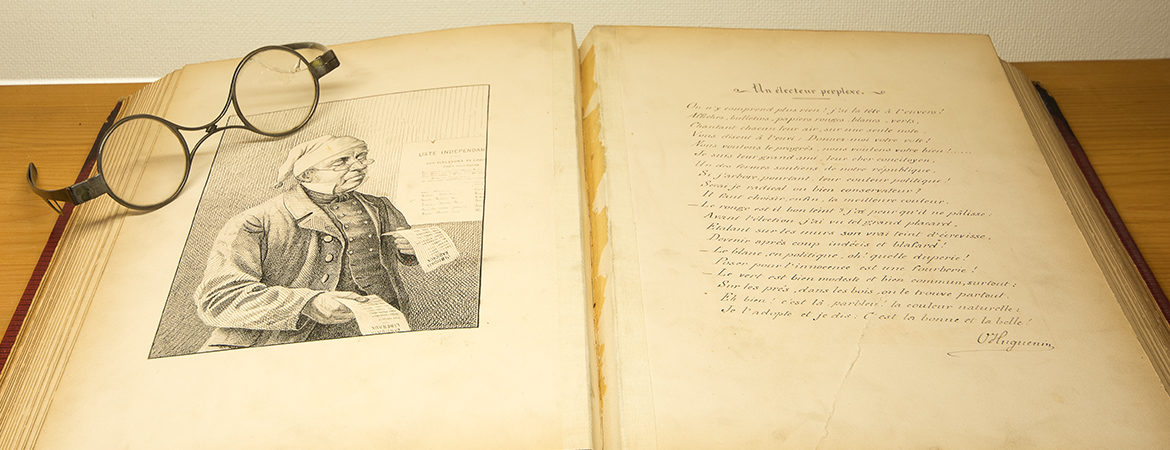 LISTE INDEPENDAN
Un électeur perplexe.
On n'y comprend plus rien! j'ai la tête à l'envers!
Affiches, bulletins, papiers rouges, blancs, verts,
Chantant chacun leur air, sur une seule note,
Vous disent à l'envi: Donnez-moi votre vote!
Nous voulons le progrès, nous voulons votre bien!.....
Je suis leur grand ami, leur cher concitoyen,
fermes soutiens de notre république.
Si j'arbore pourtant leur couleur politique!
Serai-je radical ou bien conservateur?
Il faut choisir, enfin, la meilleure couleur.
— Le rouge est-il bon teint? j'ai peur qu'il ne pâlisse.
Avant l'élection, j'ai vu tel grand placard,
Etalant sur les murs son vrai teint d'écrevisse,
Devenir après coup indécis et blafard!
— Le blanc, en politique, ah! quelle duperie!
Poser pour l'innocence est une fourberie!
— Le vert est bien modeste et bien commun, surtout:
Sur les prés, dans les bois, on le trouve partout.
Eh bien! c'est là parbleu! la couleur naturelle:
Je l'adopte et je dis: C'est la bonne et la belle!
O. Huguenin